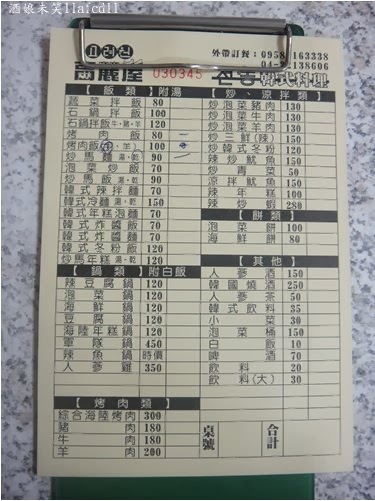 酒娘未笑llafcdll
外帶訂餐：0958-163338
04-22138606
高麗屋 030345 전통 韓式料理
【飯類】附湯
蔬菜拌飯 80
石鍋拌飯 100
石鍋拌飯牛、豬、羊 120
烤肉飯 80 一
烤肉飯(牛、羊) 100 一
炒馬麵湯、乾 90
泡菜炒飯 70
炒馬飯湯、乾 90
韓式辣拌麵 70
韓式冷麵湯、乾 150
韓式年糕泡麵 70
韓式炸醬飯 70
韓式炸醬麵 70
韓式冬粉飯 120
炒馬年糕湯、乾 120
【鍋類】附白飯
辣豆腐鍋 120
泡菜鍋 120
海鮮鍋 120
豆腐鍋 120
海陸年糕鍋 120
軍隊鍋 450
辣魚鍋 時價
人參雞 350
【烤肉類】
綜合海陸烤肉 300
豬肉 180
牛肉 180
羊肉 200
【炒、涼拌類】
炒泡菜豬肉 130
炒泡菜牛肉 130
炒泡菜羊肉 130
炒三鮮(辣) 150
炒韓式冬粉 120
辣炒魷魚 150
炒青菜 50
涼拌魷魚 150
辣年糕 100
辣炒蝦 280
【餅類】
泡菜餅 100
海鮮餅 80
【其他】
人參酒 150
韓國燒酒 250
人參茶 50
韓式飲料 35
小菜 30
泡菜桶 150
白飯 10
啤酒 70
飲料 20
飲料(大) 30
桌號
合計